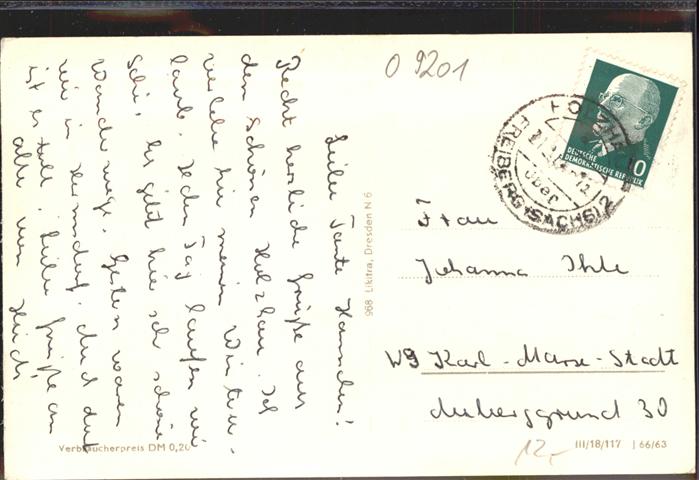 O 9201
Liebe Tante Hannchen!
Recht herzliche Grüße aus
dem schönen Holzhau. Ich
verlebe hier meinen Winterur-
laub. Jeden Tag laufen wir
Schi. Es gibt hier sehr schöne
Wanderwege. Gestern waren
wir in Hermsdorf. Aber dort
ist es kalt. Liebe Grüße an
alle von Heidi
Verbraucherpreis DM 0,20
968 Likitra, Dresden N 6
DEUTSCHE
DEMOKRATISCHE REPUBLIK
10
HOLZHAU
über
FREIBERG (SACHS) 2
Frau
Johanna Ihle
W9 Karl-Marx-Stadt
30
12,-
III/18/117 J 66/63